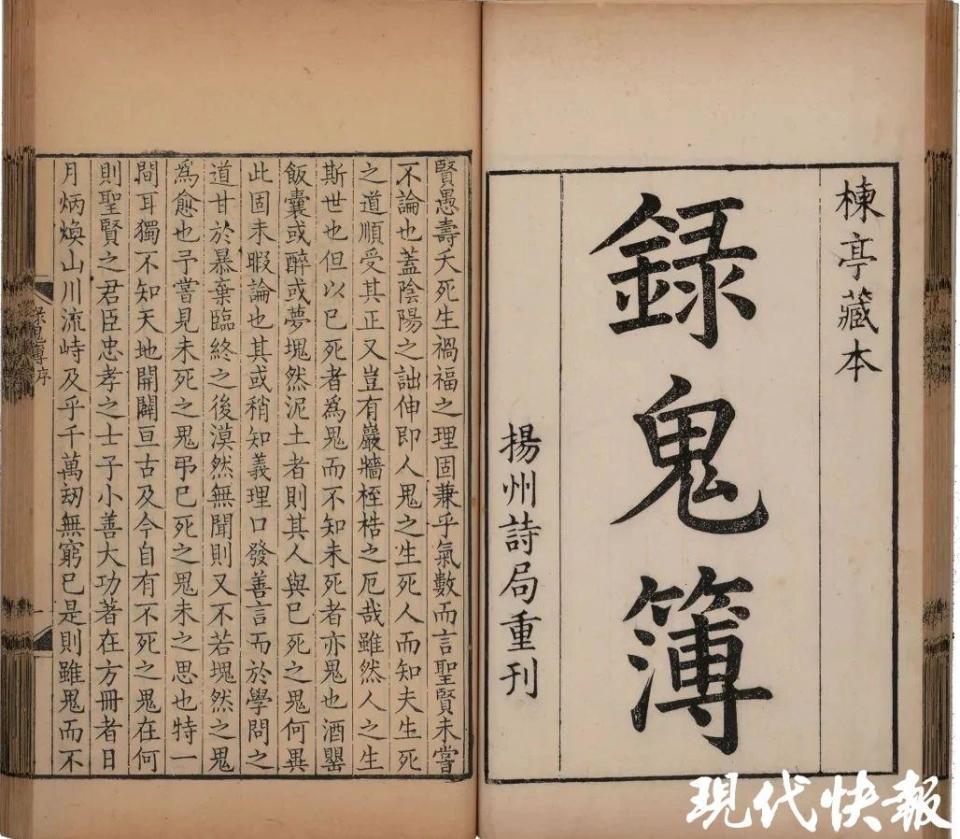 楝亭藏本
録鬼簿
揚州詩局重刊
賢愚壽夭死生禍福之理固兼乎氣數而言聖賢未嘗
不論也蓋陰陽之詘伸即人鬼之生死人而知夫生死
之道順受其正又豈有巖牆桎梏之厄哉雖然人之生
斯世也但以已死者爲鬼而不知未死者亦鬼也酒罌
飯囊或醉或夢塊然泥土者則其人與已死之鬼何異
此固未暇論也其或稍知義理口發善言而於學問之
道甘於暴棄臨終之後漠然無聞則又不若塊然之鬼
爲愈也予嘗見未死之鬼弔已死之鬼未之思也特一
間耳獨不知天地開闢亘古及今自有不死之鬼在何
則聖賢之君臣忠孝之士子小善大功著在方冊者日
月炳煥山川流峙及乎千萬劫無窮已是則雖鬼而不
鬼簿序
一
現代快報